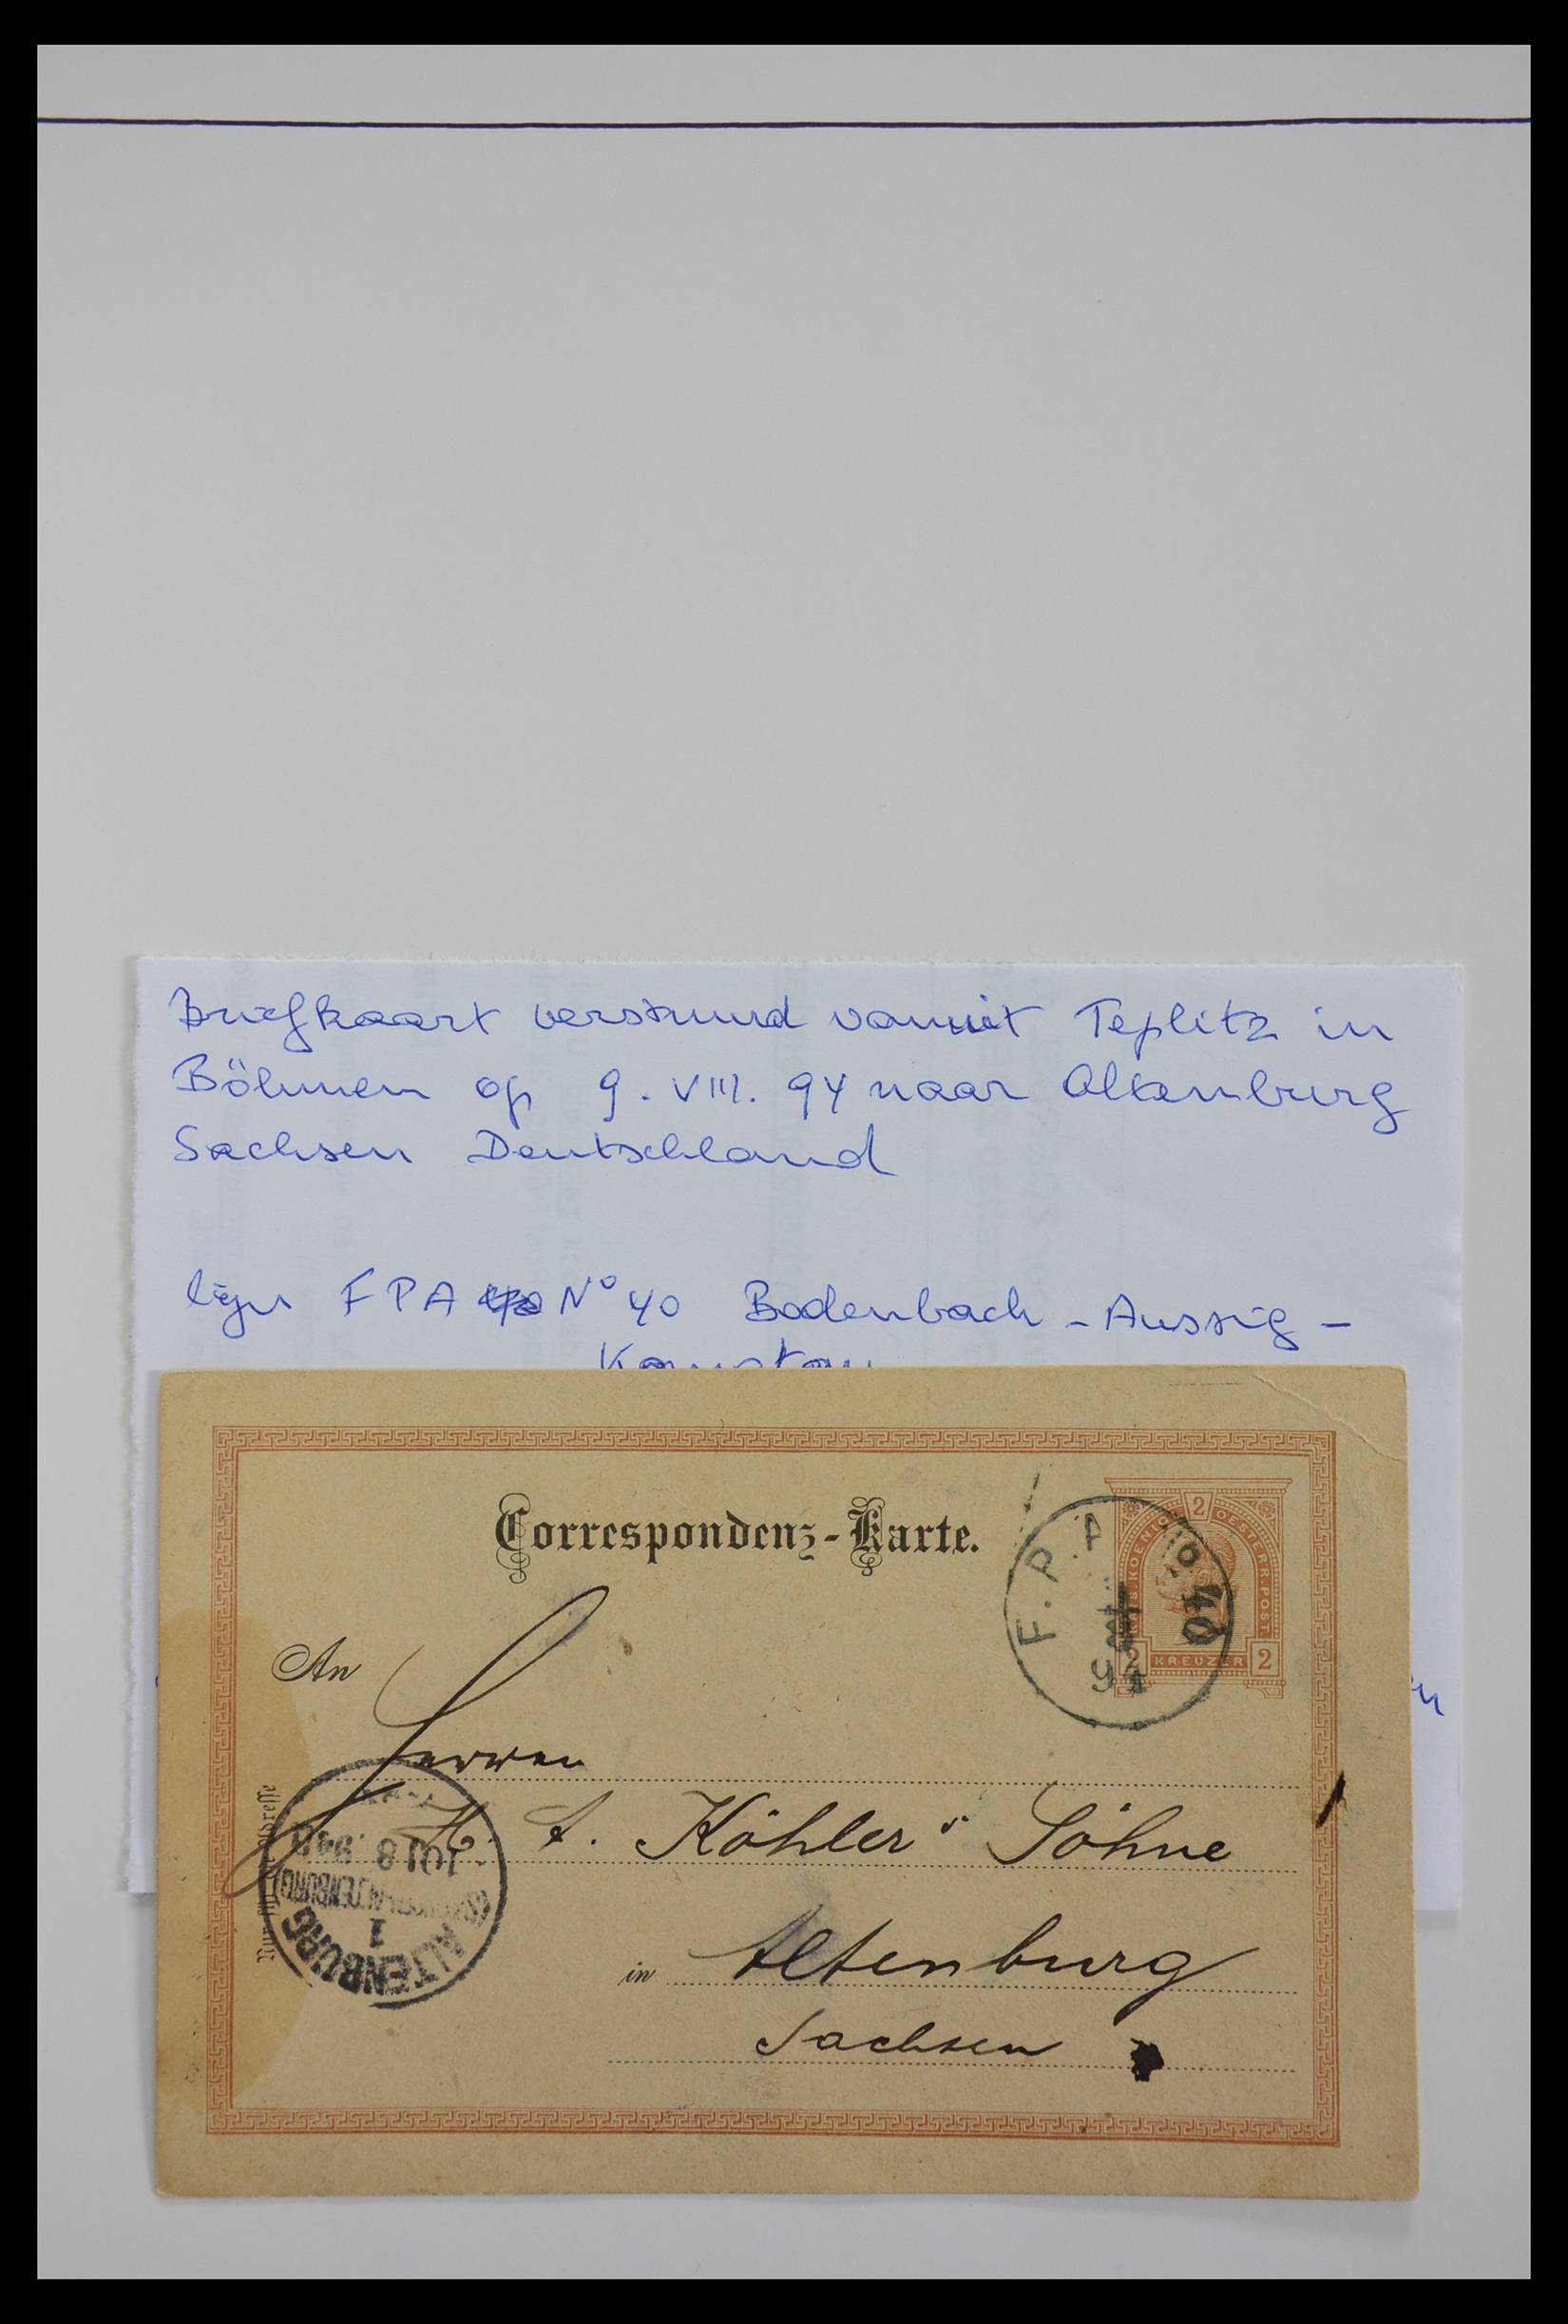 Briefkaart verstuurd vanuit Teplitz in
Böhmen op 9. VIII. 94 naar Altenburg
Sachsen Deutschland
lijn FPA N° 40 Bodenbach - Aussig -
Correspondenz-Karte.
F.P.A. No 40
94
2
KOENIGL. OESTERR. POST.
2 KREUZER 2
An
Herren
A. Köhler's Söhne
in Altenburg
Sachsen
Nur für die Adresse
ALTENBURG
1
10 1 8 94